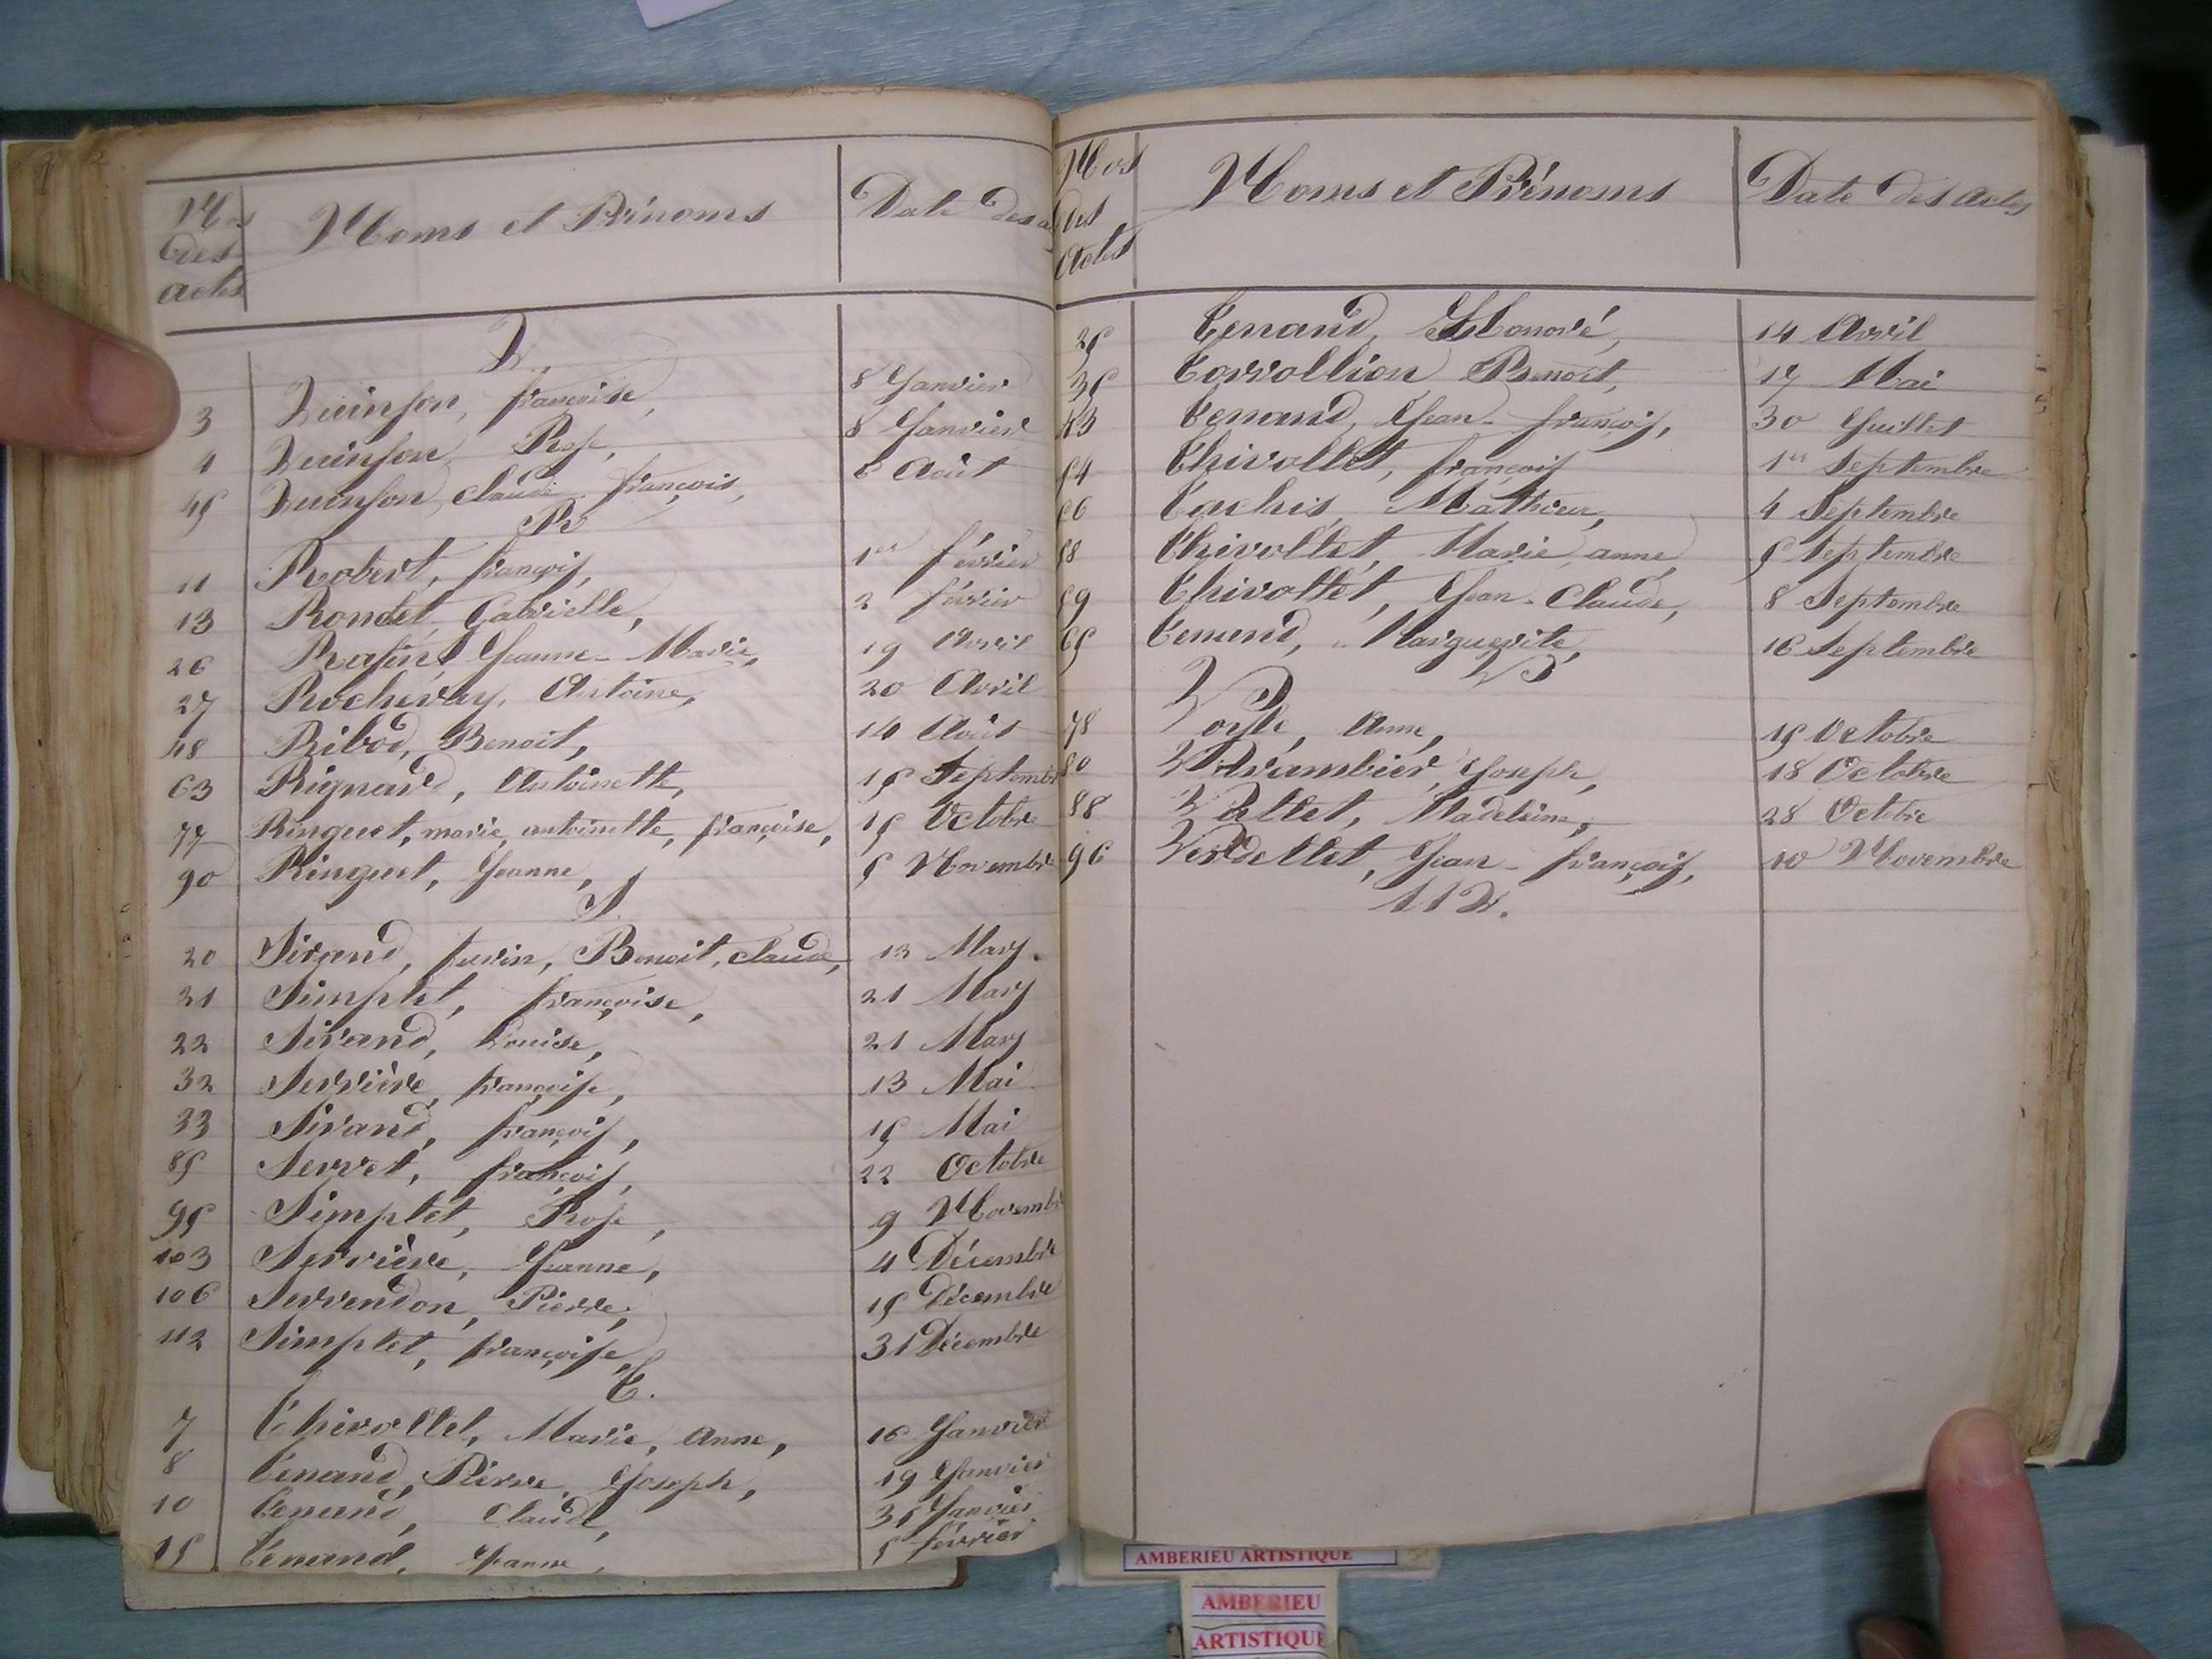 Nos des actes
Noms et Prénoms
Date des a
Q.
3 Quinson, françoise, 8 Janvier
4 Quinson, Rose, 8 Janvier
45 Quinson, claude françois, 6 Août
R
11 Robert, françois, 1er février
13 Rondet Gabrielle, 2 février
26 Jeanne-Marie, 19 Avril
27 Rochevay, Antoine, 20 Avril
48 Ribod, Benoit, 14 Août
63 Rignard, Antoinette, 15 Septembre
77 Ringuet, marie, antoinette, françoise, 15 Octobre
90 Ringuet, Jeanne, 5 Novembre
S.
20 Sirand, Benoit, claude, 13 Mars.
21 Simplet, françoise, 21 Mars
22 Sirand, Louise, 21 Mars
32 Serrière, françoise, 13 Mai
33 Sirand, françois, 15 Mai
85 Servet, françois, 22 Octobre
95 Simplet, Rose, 9 Novembre
103 Serrière, Jeanne, 4 Décembre
106 Servendon, Pierre, 15 Décembre
112 Simplet, françoise, 31 Décembre
T.
7 Thivollet, Marie, Anne, 16 Janvier
8 Tenand, Pierre, Joseph, 19 Janvier
10 Tenand, Claude, 31 Janvier
15 Tenand, Jeanne, 5 février
Nos des Actes
Noms et Prénoms
Date des Actes
25 Tenand, Honoré, 14 Avril
35 Torrollion Benoit, 17 Mai
43 Tenand, Jean-françois, 30 Juillet
54 Thivollet, françois 1er Septembre
56 Tachis, Mathieu, 4 Septembre
58 Thivollet, Marie anne, 5 Septembre
59 Thivollet, Jean-Claude, 8 Septembre
65 Tenand, Marguerite, 16 Septembre
V
78 Anne, 15 Octobre
80 Joseph, 18 Octobre
88 Vallet, Madeleine, 28 Octobre
96 Verdellet, Jean-françois, 10 Novembre
112.
AMBERIEU ARTISTIQUE
AMBERIEU
ARTISTIQUE